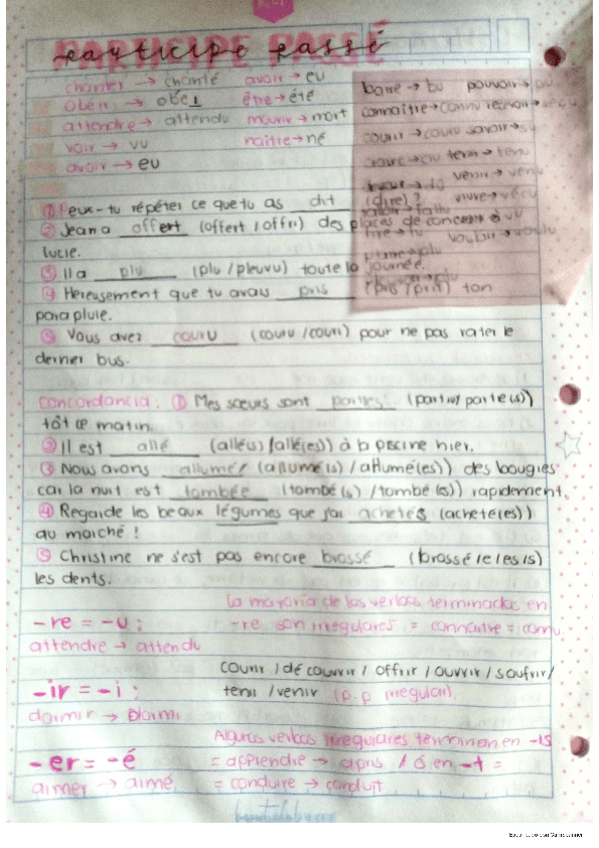 participe passé
chanter → chanté avoir → eu
obéir → obéi être → été
attendre → attendu mourir → mort
voir → vu naître → né
avoir → eu
boire → bu pouvoir →
connaître → connu recevoir →
courir → couru savoir → su
tenir → tenu
venir → venu
vivre → vécu
vouloir → voulu
① Peux-tu répéter ce que tu as dit (dire)?
② Jean a offert (offert / offri) des places de concert à
Lucie.
③ Il a plu (plu / pleuvu) toute la journée.
④ Hereusement que tu avais pris (pris / prit) ton
parapluie.
⑤ Vous avez couru (couru / couri) pour ne pas rater le
dernier bus.
Concordancia: ① Mes sœurs sont parties
tôt ce matin.
② Il est allé (allé(s) / allé(es)) à la piscine hier.
③ Nous avons allumé (allumé(s) / allumé(es)) des bougies
car la nuit est tombée (tombé(s) / tombé(s)) rapidement.
④ Regarde les beaux légumes que j'ai achetés (acheté(es))
au marché!
⑤ Christine ne s'est pas encore brossé (brossé /e/es/s)
les dents.
La mayoría de los verbos terminados en
-re = -u: -re son irregulares = connaître = connu
attendre → attendu
courir / découvrir / offrir / ouvrir / soufrir/
-ir = -i: tenir / venir (p.p irregular).
dormir → dormi
Algunos verbos irregulares terminan en -is
-er = -é = apprendre → apris / ó en -t =
aimer → aimé = conduire → conduit